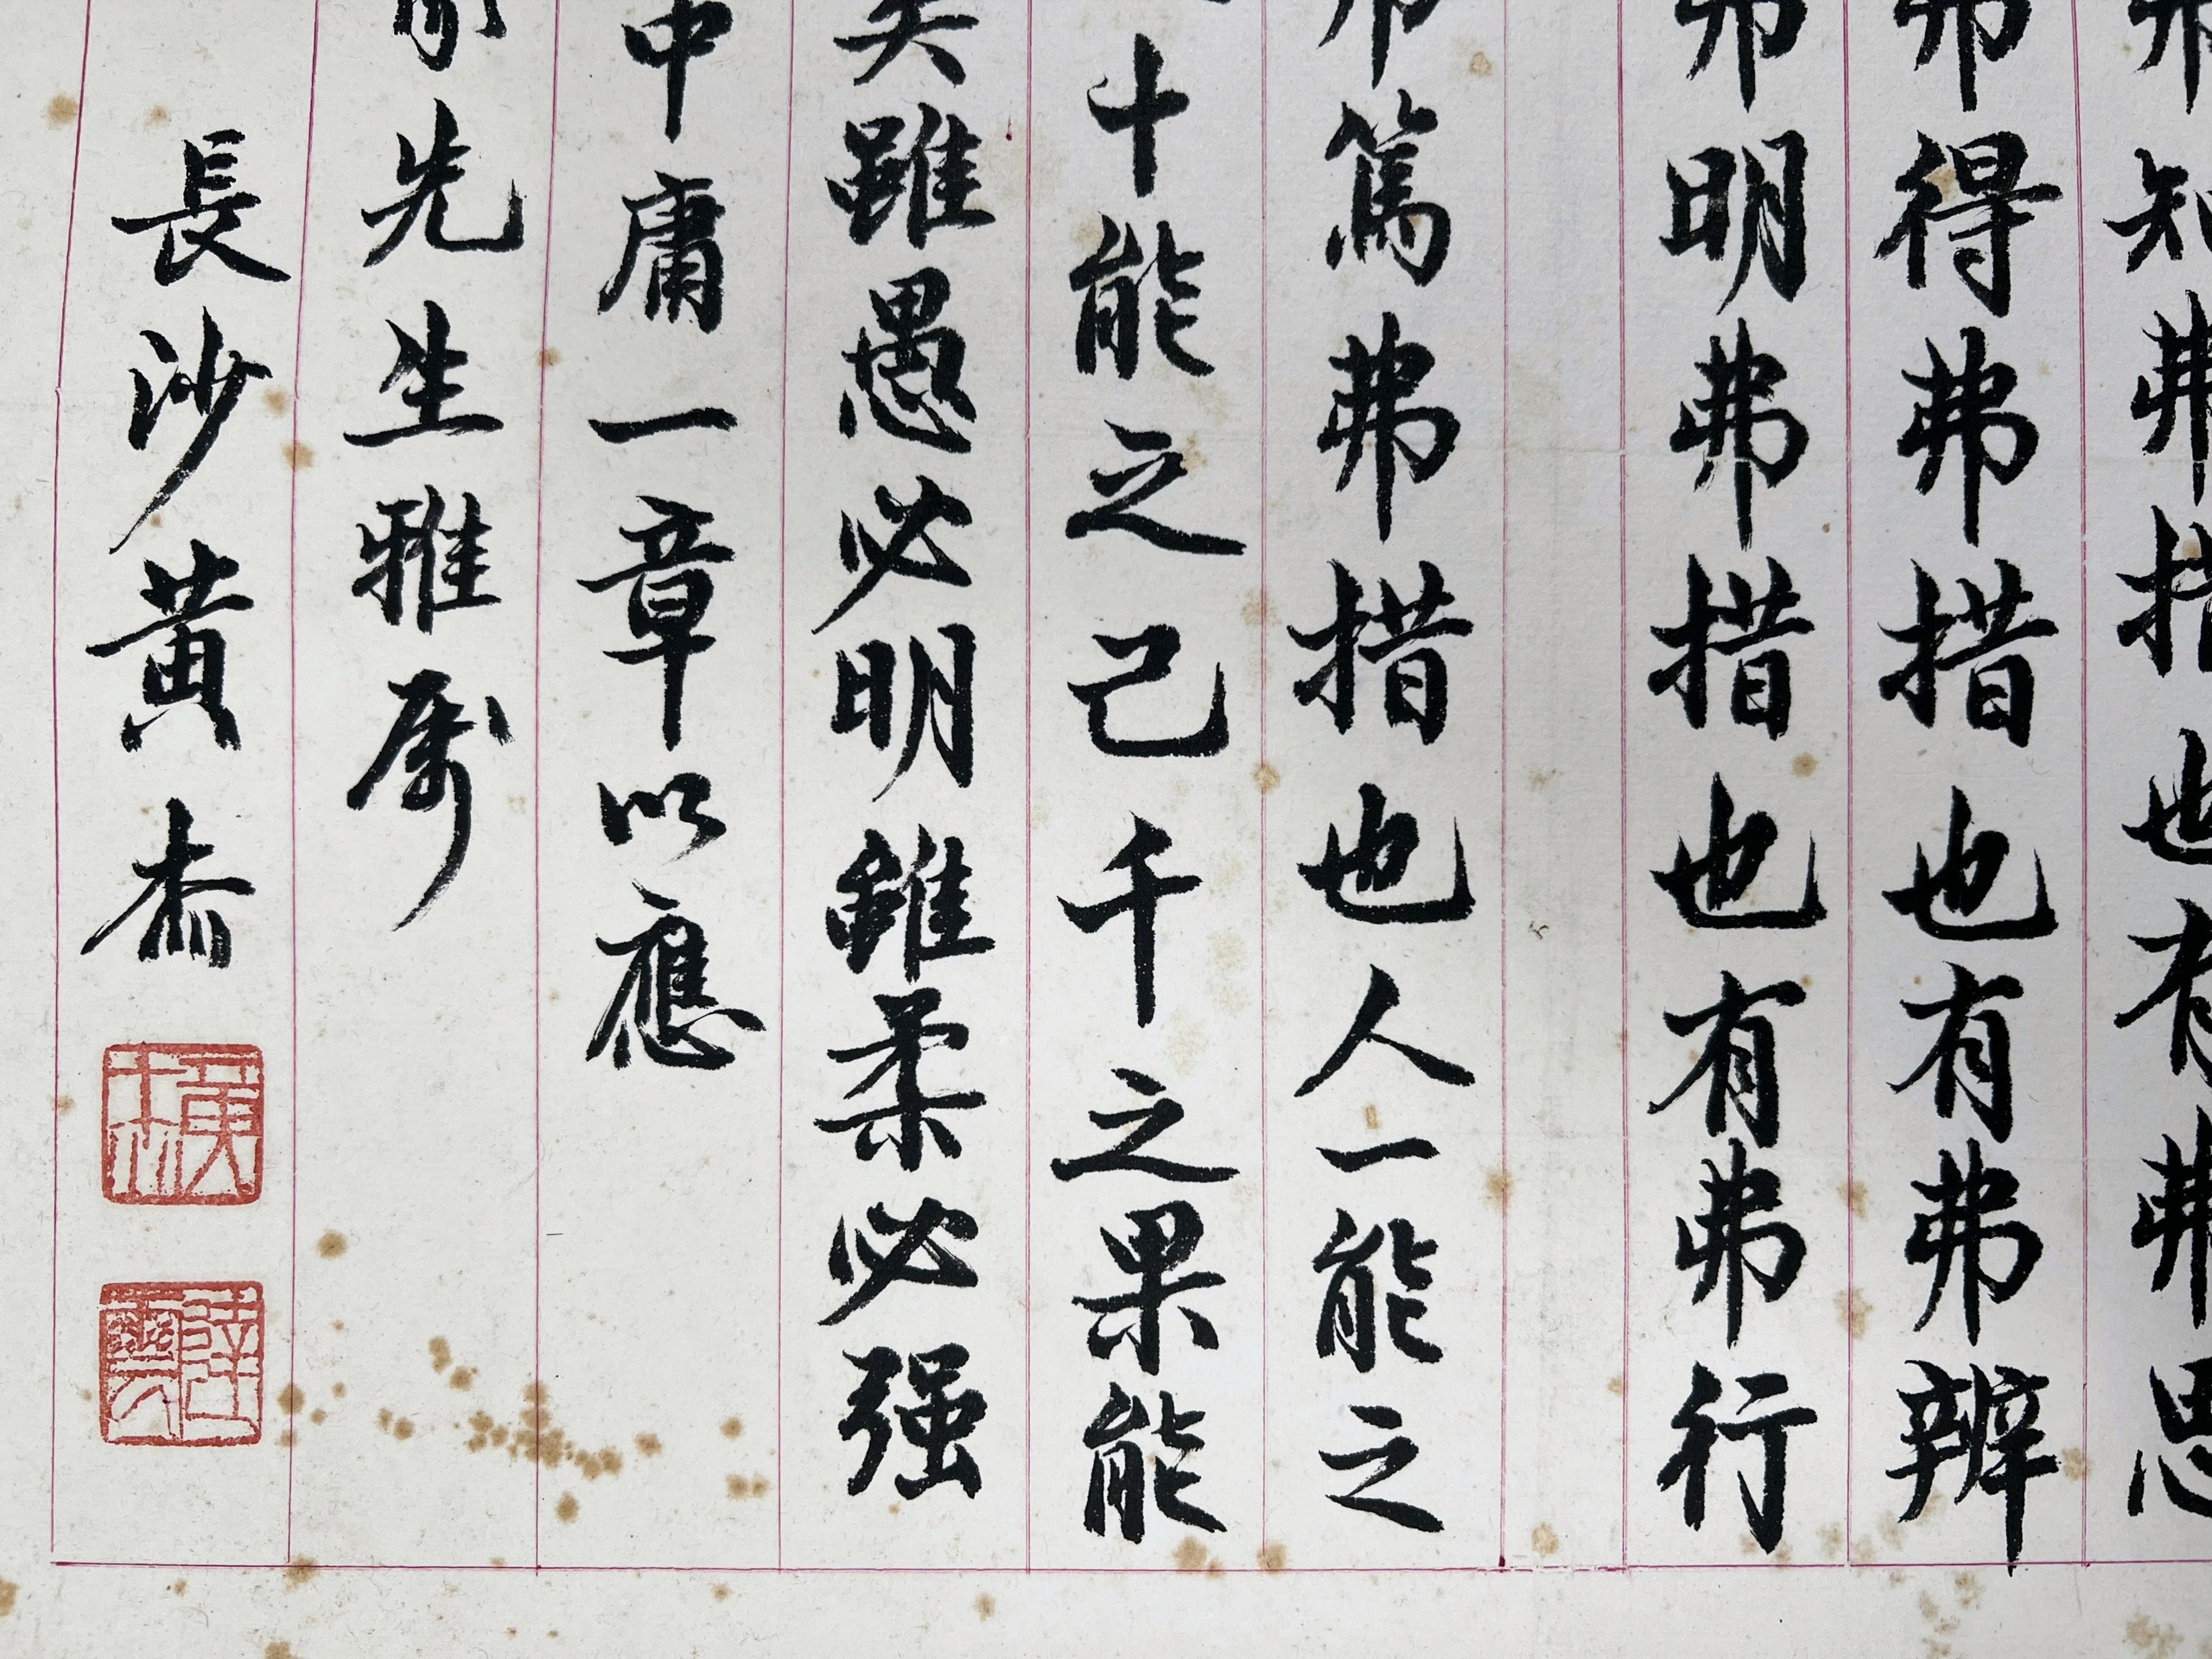 知弗措也有弗思
弗得弗措也有弗辨
弗明弗措也有弗行
弗篤弗措也人一能之
十能之己千之果能
矣雖愚必明雖柔必强
中庸一章以應
先生雅屬
長沙黃